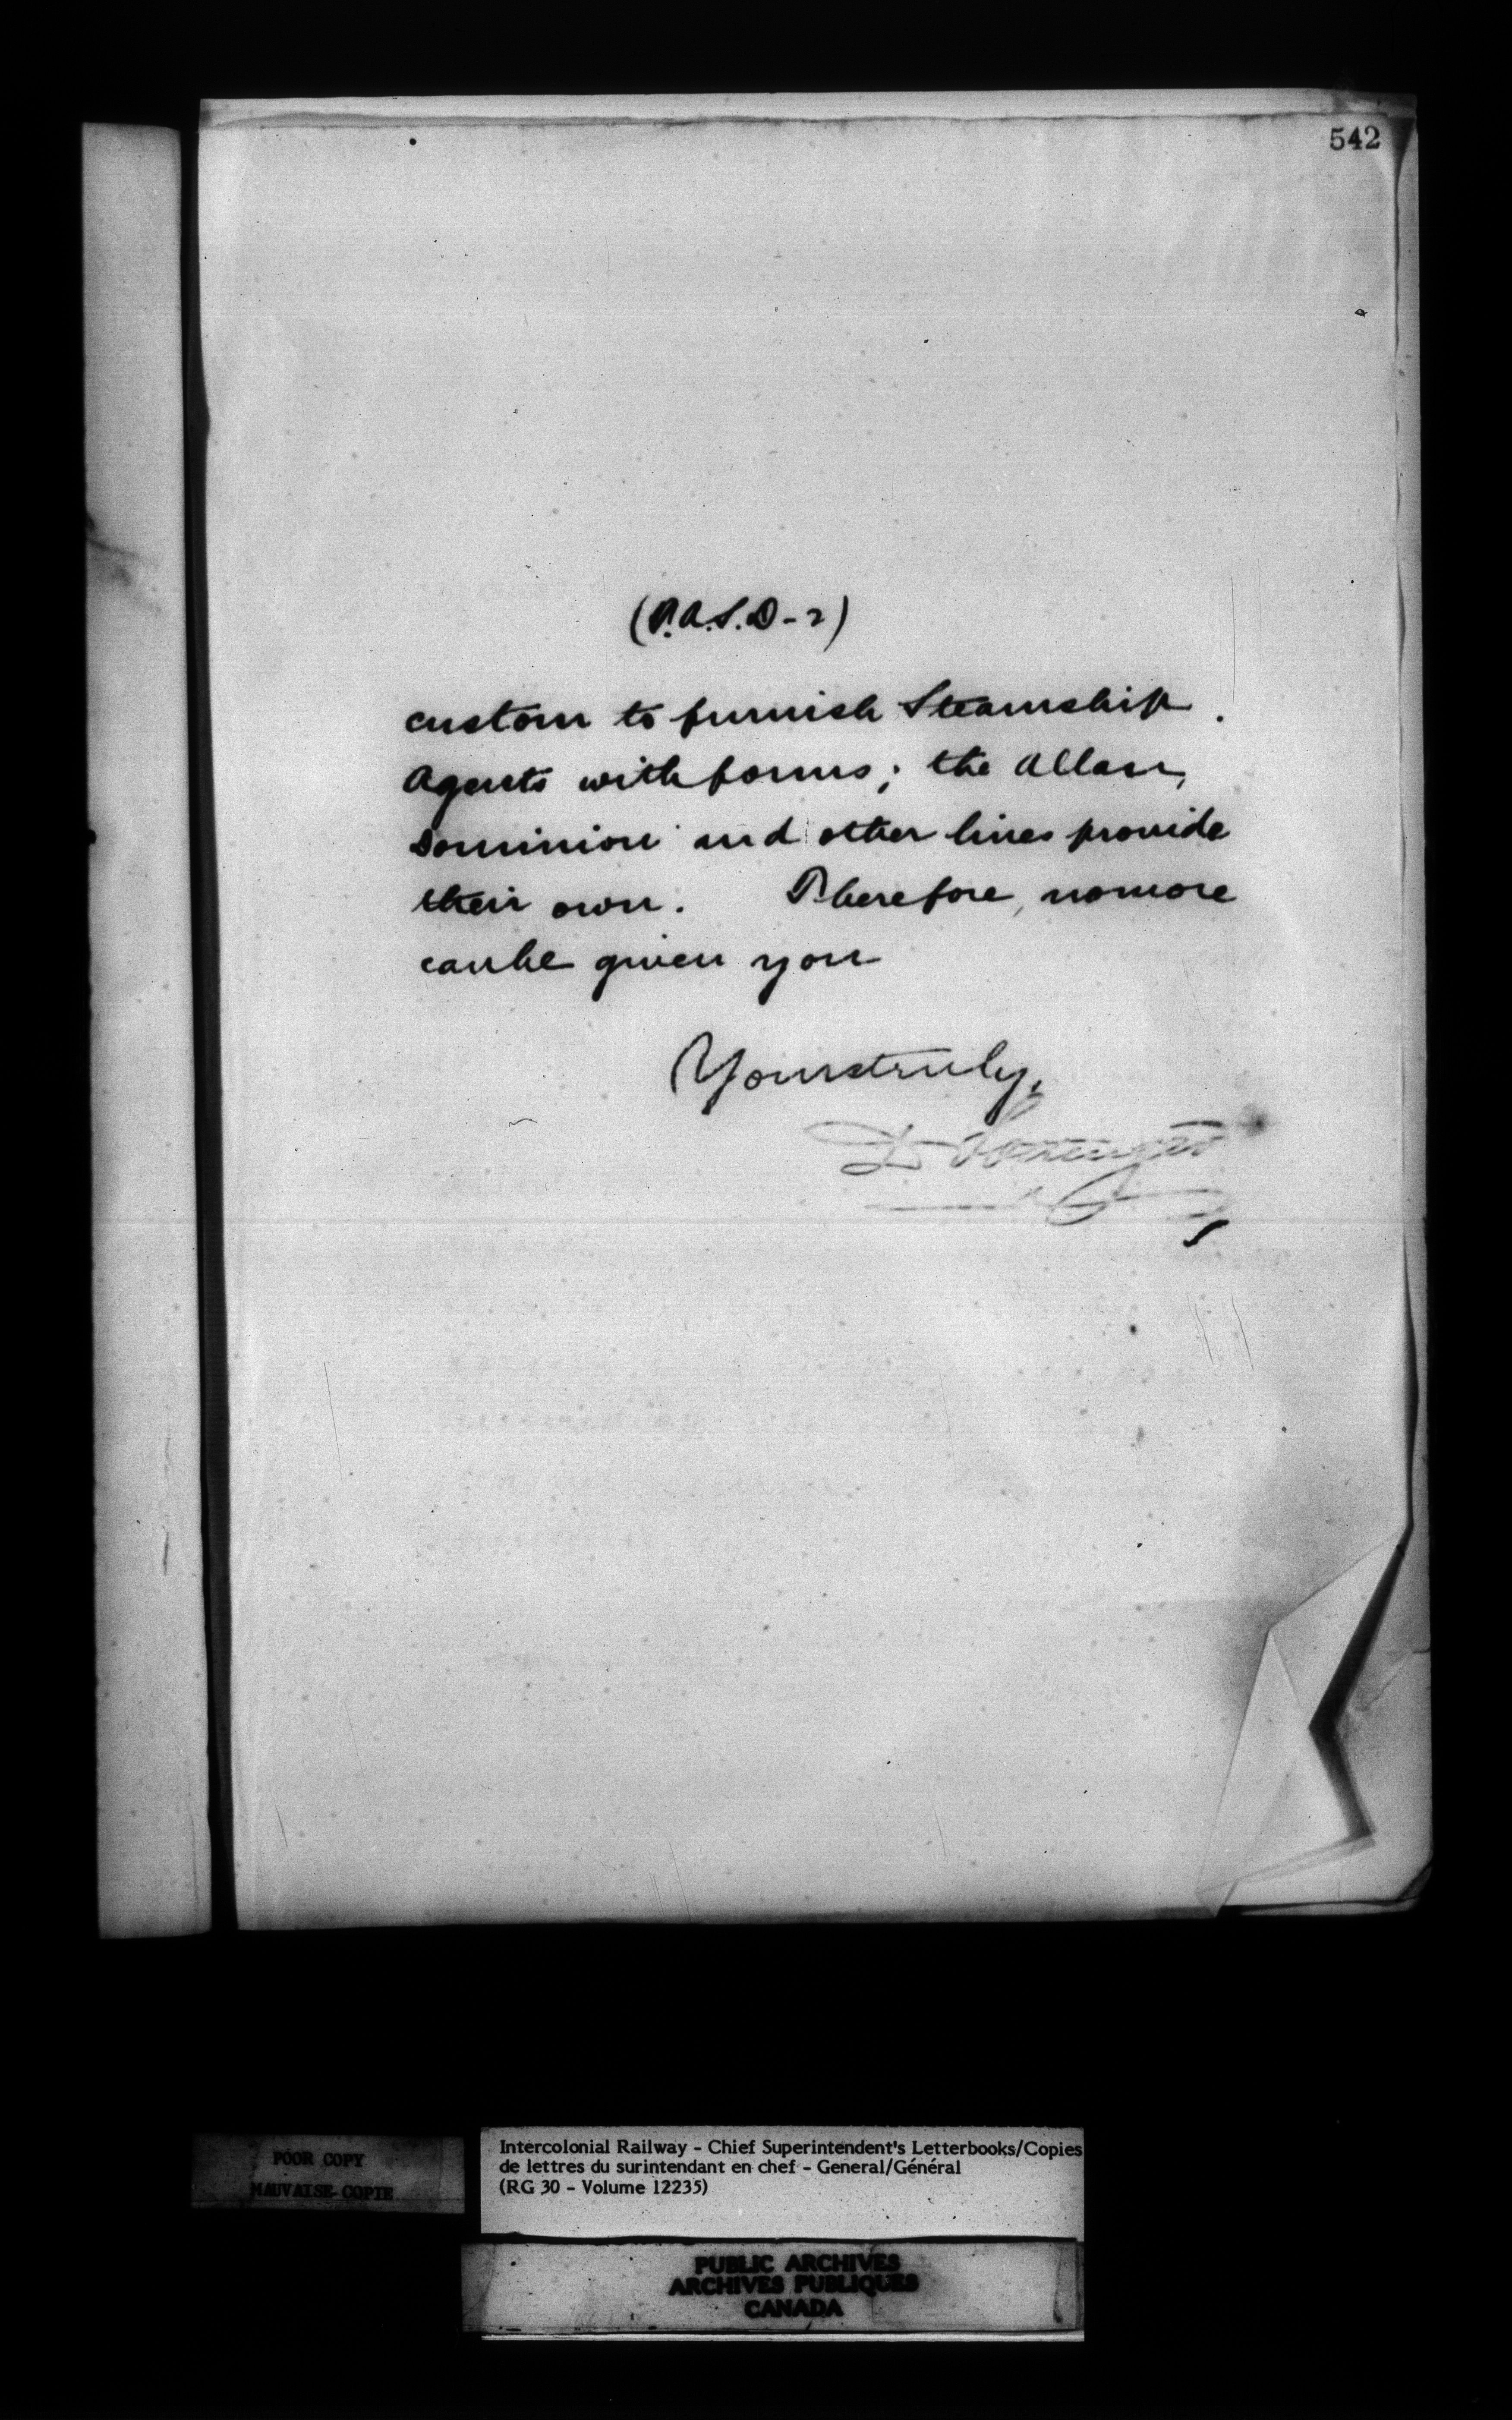 542
(P.A.S.D-2)
custom to furnish Steamship
Agents with forms; the Allan,
Dominion and other lines provide
their own. Therefore, no more
can be given you
Yours truly,
D Pottinger
POOR COPY
MAUVAISE COPIE
Intercolonial Railway - Chief Superintendent's Letterbooks/Copies
de lettres du surintendant en chef - General/Général
(RG 30 - Volume 12235)
PUBLIC ARCHIVES
ARCHIVES PUBLIQUES
CANADA